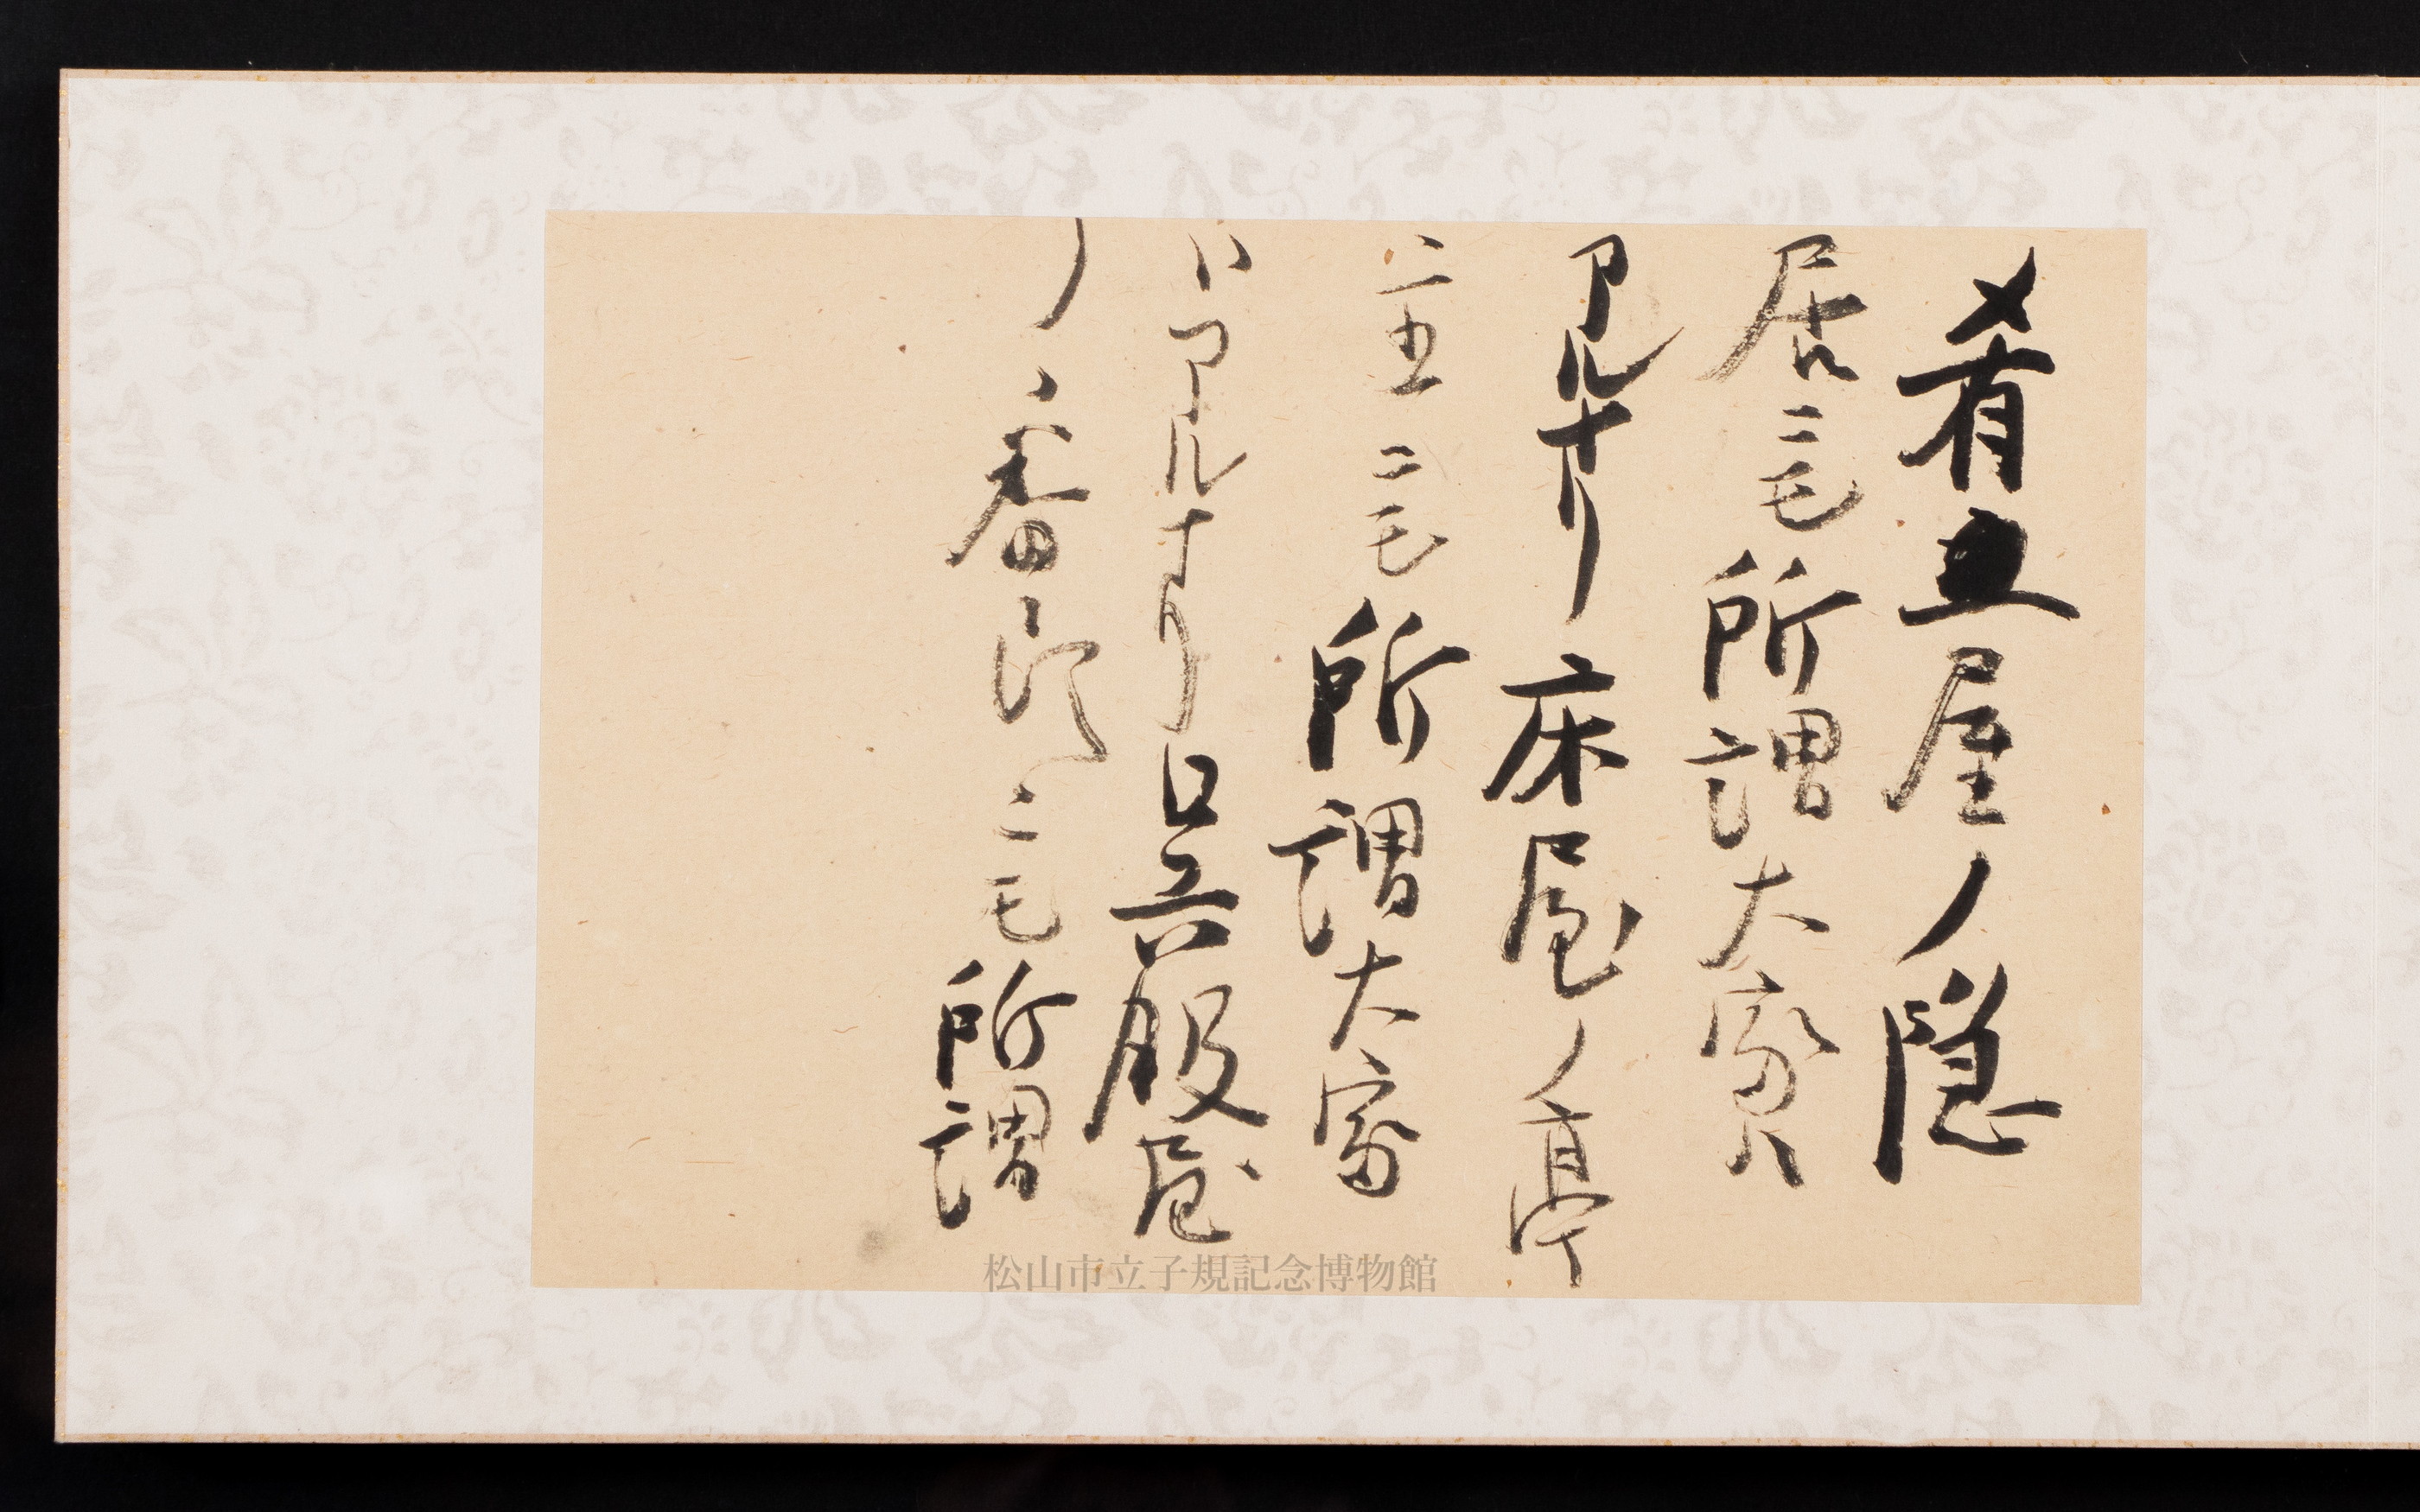 肴屋ノ隠
居ニモ所謂大家ハ
アルナリ床屋ノ亭
主ニモ所謂大家
ハアルナリ呉服屋
ノ番頭ニモ所謂
松山市立子規記念博物館